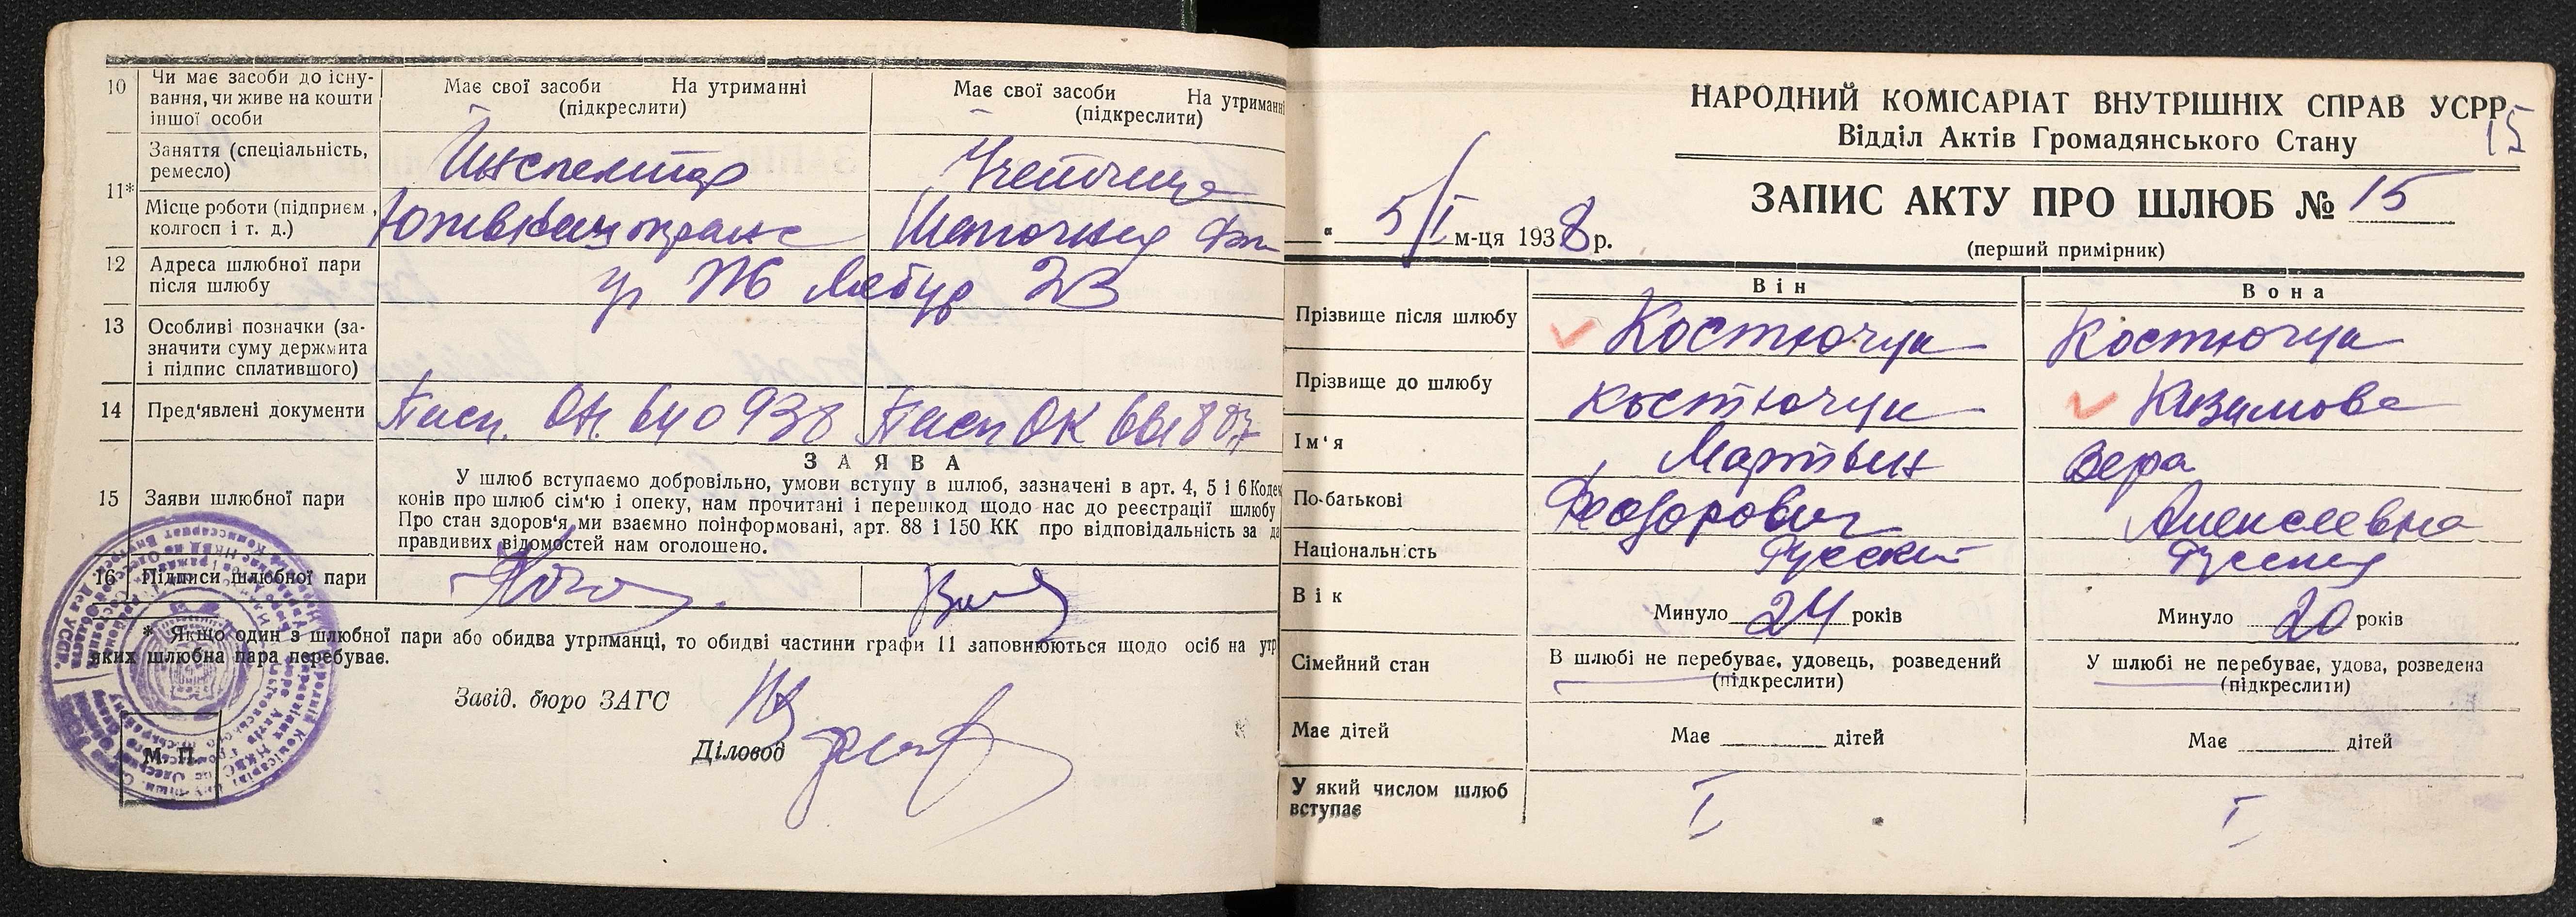 10 Чи має засоби до існу-
вання, чи живе на кошти
іншої особи
Має свої засоби На утриманні
(підкреслити)
Має свої засоби На утриманні
(підкреслити)
11* Заняття (спеціальність,
ремесло)
Инспектор
Учетчица
Місце роботи (підприєм,
колгосп і т. д.)
Шапочная
12 Адреса шлюбної пари
після шлюбу
ул 23
13 Особливі позначки (за-
значити суму держмита
і підпис сплатившого)
14 Пред'явлені документи
Пасп. ОН. 640938
Пасп ОК
15 Заяви шлюбної пари
ЗАЯВА
У шлюб вступаємо добровільно, умови вступу в шлюб, зазначені в арт. 4, 5 і 6 Кодек
конів про шлюб сім'ю і опеку, нам прочитані і перешкод щодо нас до реєстрації шлюбу
Про стан здоров'я ми взаємно поінформовані, арт. 88 і 150 КК про відповідальність за да
правдивих відомостей нам оголошено.
16 Підписи шлюбної пари
* Якщо один з шлюбної пари або обидва утриманці, то обидві частини графи 11 заповнюються щодо осіб на утр
яких шлюбна пара перебуває.
Завід. бюро ЗАГС
Діловод
М. П.
НАРОДНИЙ КОМІСАРІАТ ВНУТРІШНІХ СПРАВ УСРР
15
Відділ Актів Громадянського Стану
ЗАПИС АКТУ ПРО ШЛЮБ № 15
(перший примірник)
" 5/I м-ця 1938 р.
Він
Вона
Прізвище після шлюбу
Костючук
Костючук
Прізвище до шлюбу
Костючук
Казимова
Ім'я
Мартын
Вера
По-батькові
Феодорович
Алексеевна
Національність
Русский
Русская
Вік
Минуло 24 років
Минуло 20 років
Сімейний стан
В шлюбі не перебуває, удовець, розведений
(підкреслити)
У шлюбі не перебуває, удова, розведена
(підкреслити)
Має дітей
Має ______ дітей
Має ______ дітей
У який числом шлюб
вступає
I
I